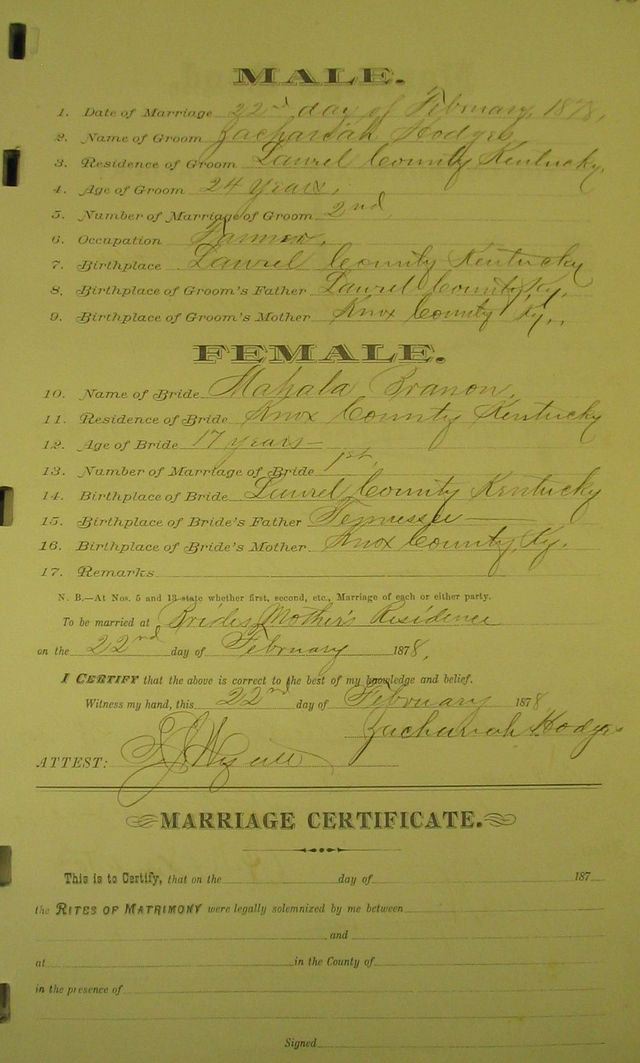 MALE.
1. Date of Marriage 22nd day of February, 1878,
2. Name of Groom Zachariah Hodges
3. Residence of Groom Laurel County Kentucky.
4. Age of Groom 24 years,
5. Number of Marriage of Groom 2nd
6. Occupation Farmer.
7. Birthplace Laurel County Kentucky
8. Birthplace of Groom's Father Laurel County Ky,
9. Birthplace of Groom's Mother Knox County Ky.,
FEMALE.
10. Name of Bride Mahala Branon,
11. Residence of Bride Knox County Kentucky
12. Age of Bride 17 years—
13. Number of Marriage of Bride 1st,
14. Birthplace of Bride Laurel County Kentucky
15. Birthplace of Bride's Father Tennessee —
16. Birthplace of Bride's Mother Knox County, Ky.
17. Remarks
N. B.—At Nos. 5 and 13 state whether first, second, etc., Marriage of each or either party.
To be married at Brides Mother's Residence
on the 22nd day of February 1878,
I CERTIFY that the above is correct to the best of my knowledge and belief.
Witness my hand, this 22nd day of February 1878
Zachariah Hodges
ATTEST:
MARRIAGE CERTIFICATE.
This is to Certify, that on the day of 187
the RITES OF MATRIMONY were legally solemnized by me between
and
at in the County of
in the presence of
Signed